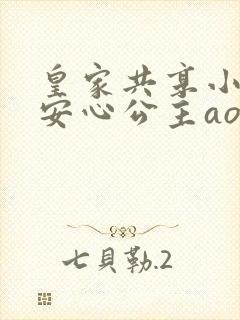 皇家共享小
安心公主ao
七貝勒.2